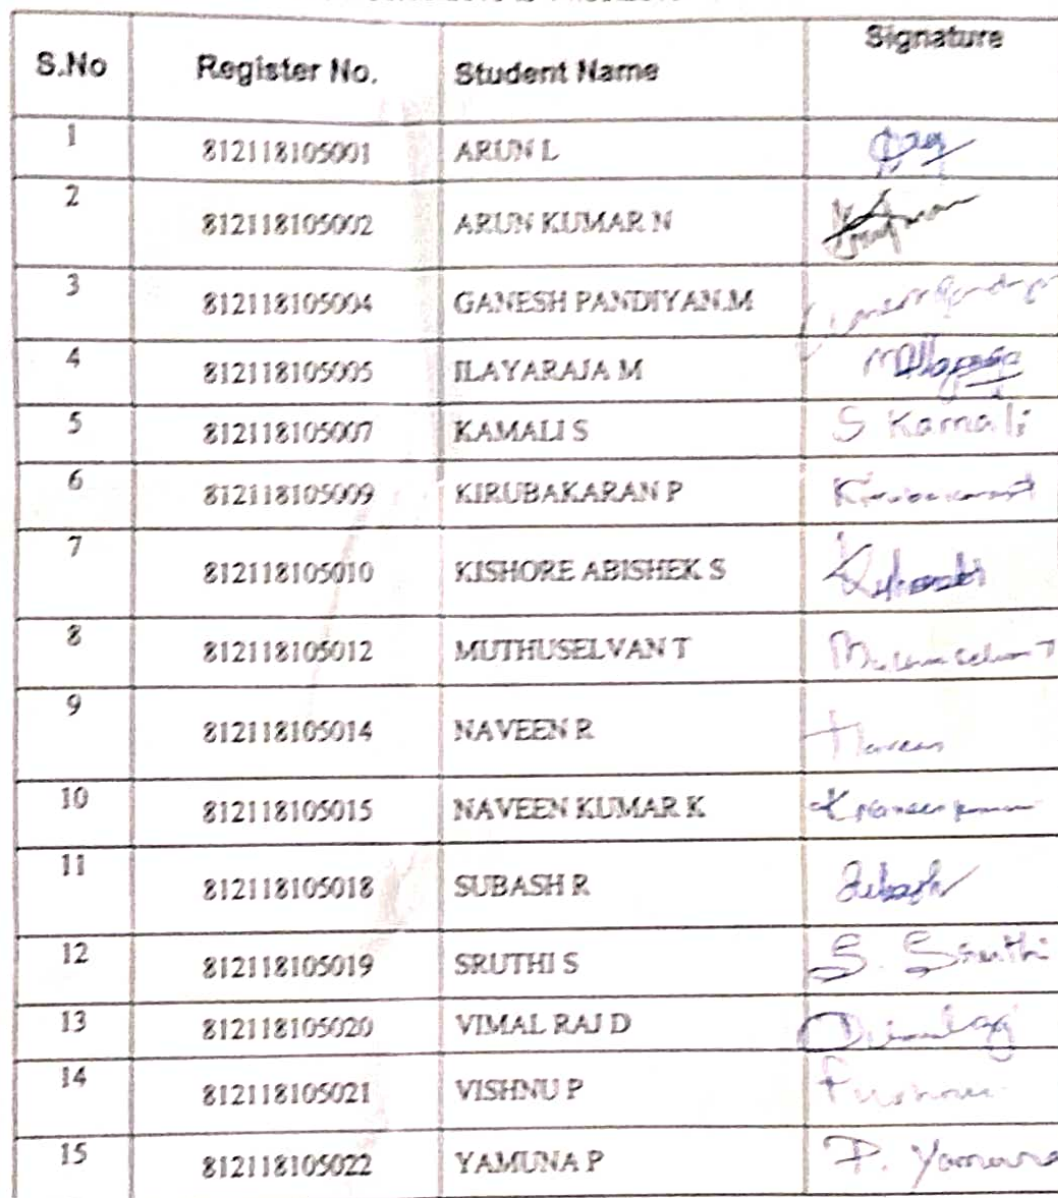 S.No Register No. Student Name Signature
1 812118105001 ARUN L
2 812118105002 ARUN KUMAR N
3 812118105004 GANESH PANDIYAN.M
4 812118105005 ILAYARAJA M
5 812118105007 KAMALI S S Kamali
6 812118105009 KIRUBAKARAN P Kirubakaran P
7 812118105010 KISHORE ABISHEK S
8 812118105012 MUTHUSELVAN T Muthuselvan T
9 812118105014 NAVEEN R Naveen
10 812118105015 NAVEEN KUMAR K
11 812118105018 SUBASH R Subash
12 812118105019 SRUTHI S S. Sruthi
13 812118105020 VIMAL RAJ D
14 812118105021 VISHNU P
15 812118105022 YAMUNA P P. Yamuna